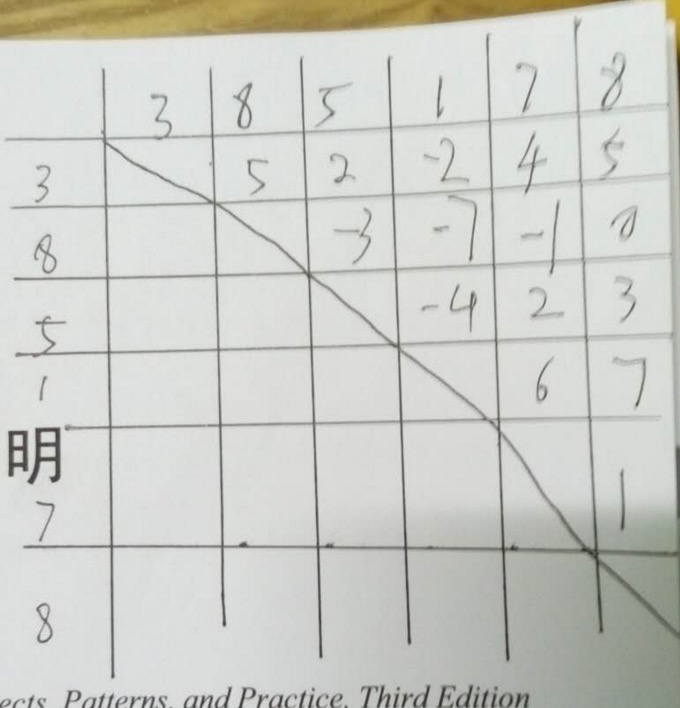 3 8 5 1 7 8
3 5 2 -2 4 5
8 -3 -7 -1 0
5 -4 2 3
1 6 7
明
7 1
8
ects, Patterns, and Practice, Third Edition